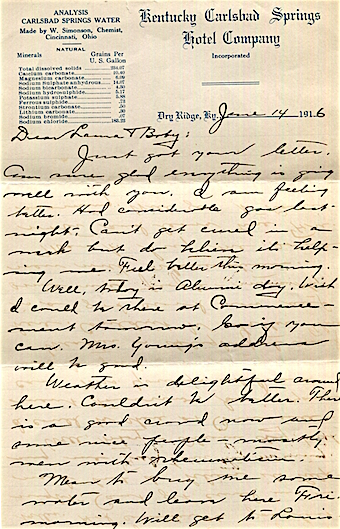 ANALYSIS
CARLSBAD SPRINGS WATER
Made by W. Simonson, Chemist,
Cincinnati, Ohio
NATURAL
Minerals Grains Per
U. S. Gallon
Total dissolved solids
Calcium carbonate
Magnesium carbonate
Sodium Sulphate anhydrous
Sodium bicarbonate
Sodium hydrosulphide
Potassium sulphate
Ferrous sulphate
Strontium carbonate
Lithium carbonate
Sodium bromide
Sodium chloride
Kentucky Carlsbad Springs
Hotel Company
Incorporated
Dry Ridge, Ky. June 14 1916
Dear Lama & Baby:
Just got your letter.
Am sure glad everything is going
well with you. I am feeling
better. Had considerable gas last
night. Can't get cured in a
week but do believe it's help-
ing me. Feel better this morning
Well, today is Alumni day. Wish
I could be there at Commence-
ment tomorrow. Go if you
can. Mrs. Young's address
will be good.
Weather is delightful around
here. Couldn't be better. There
is a good crowd now and
some nice people - mostly
men with rheumatism.
Mean to buy me some
water and leave here Fri.
morning. Will get to Louis